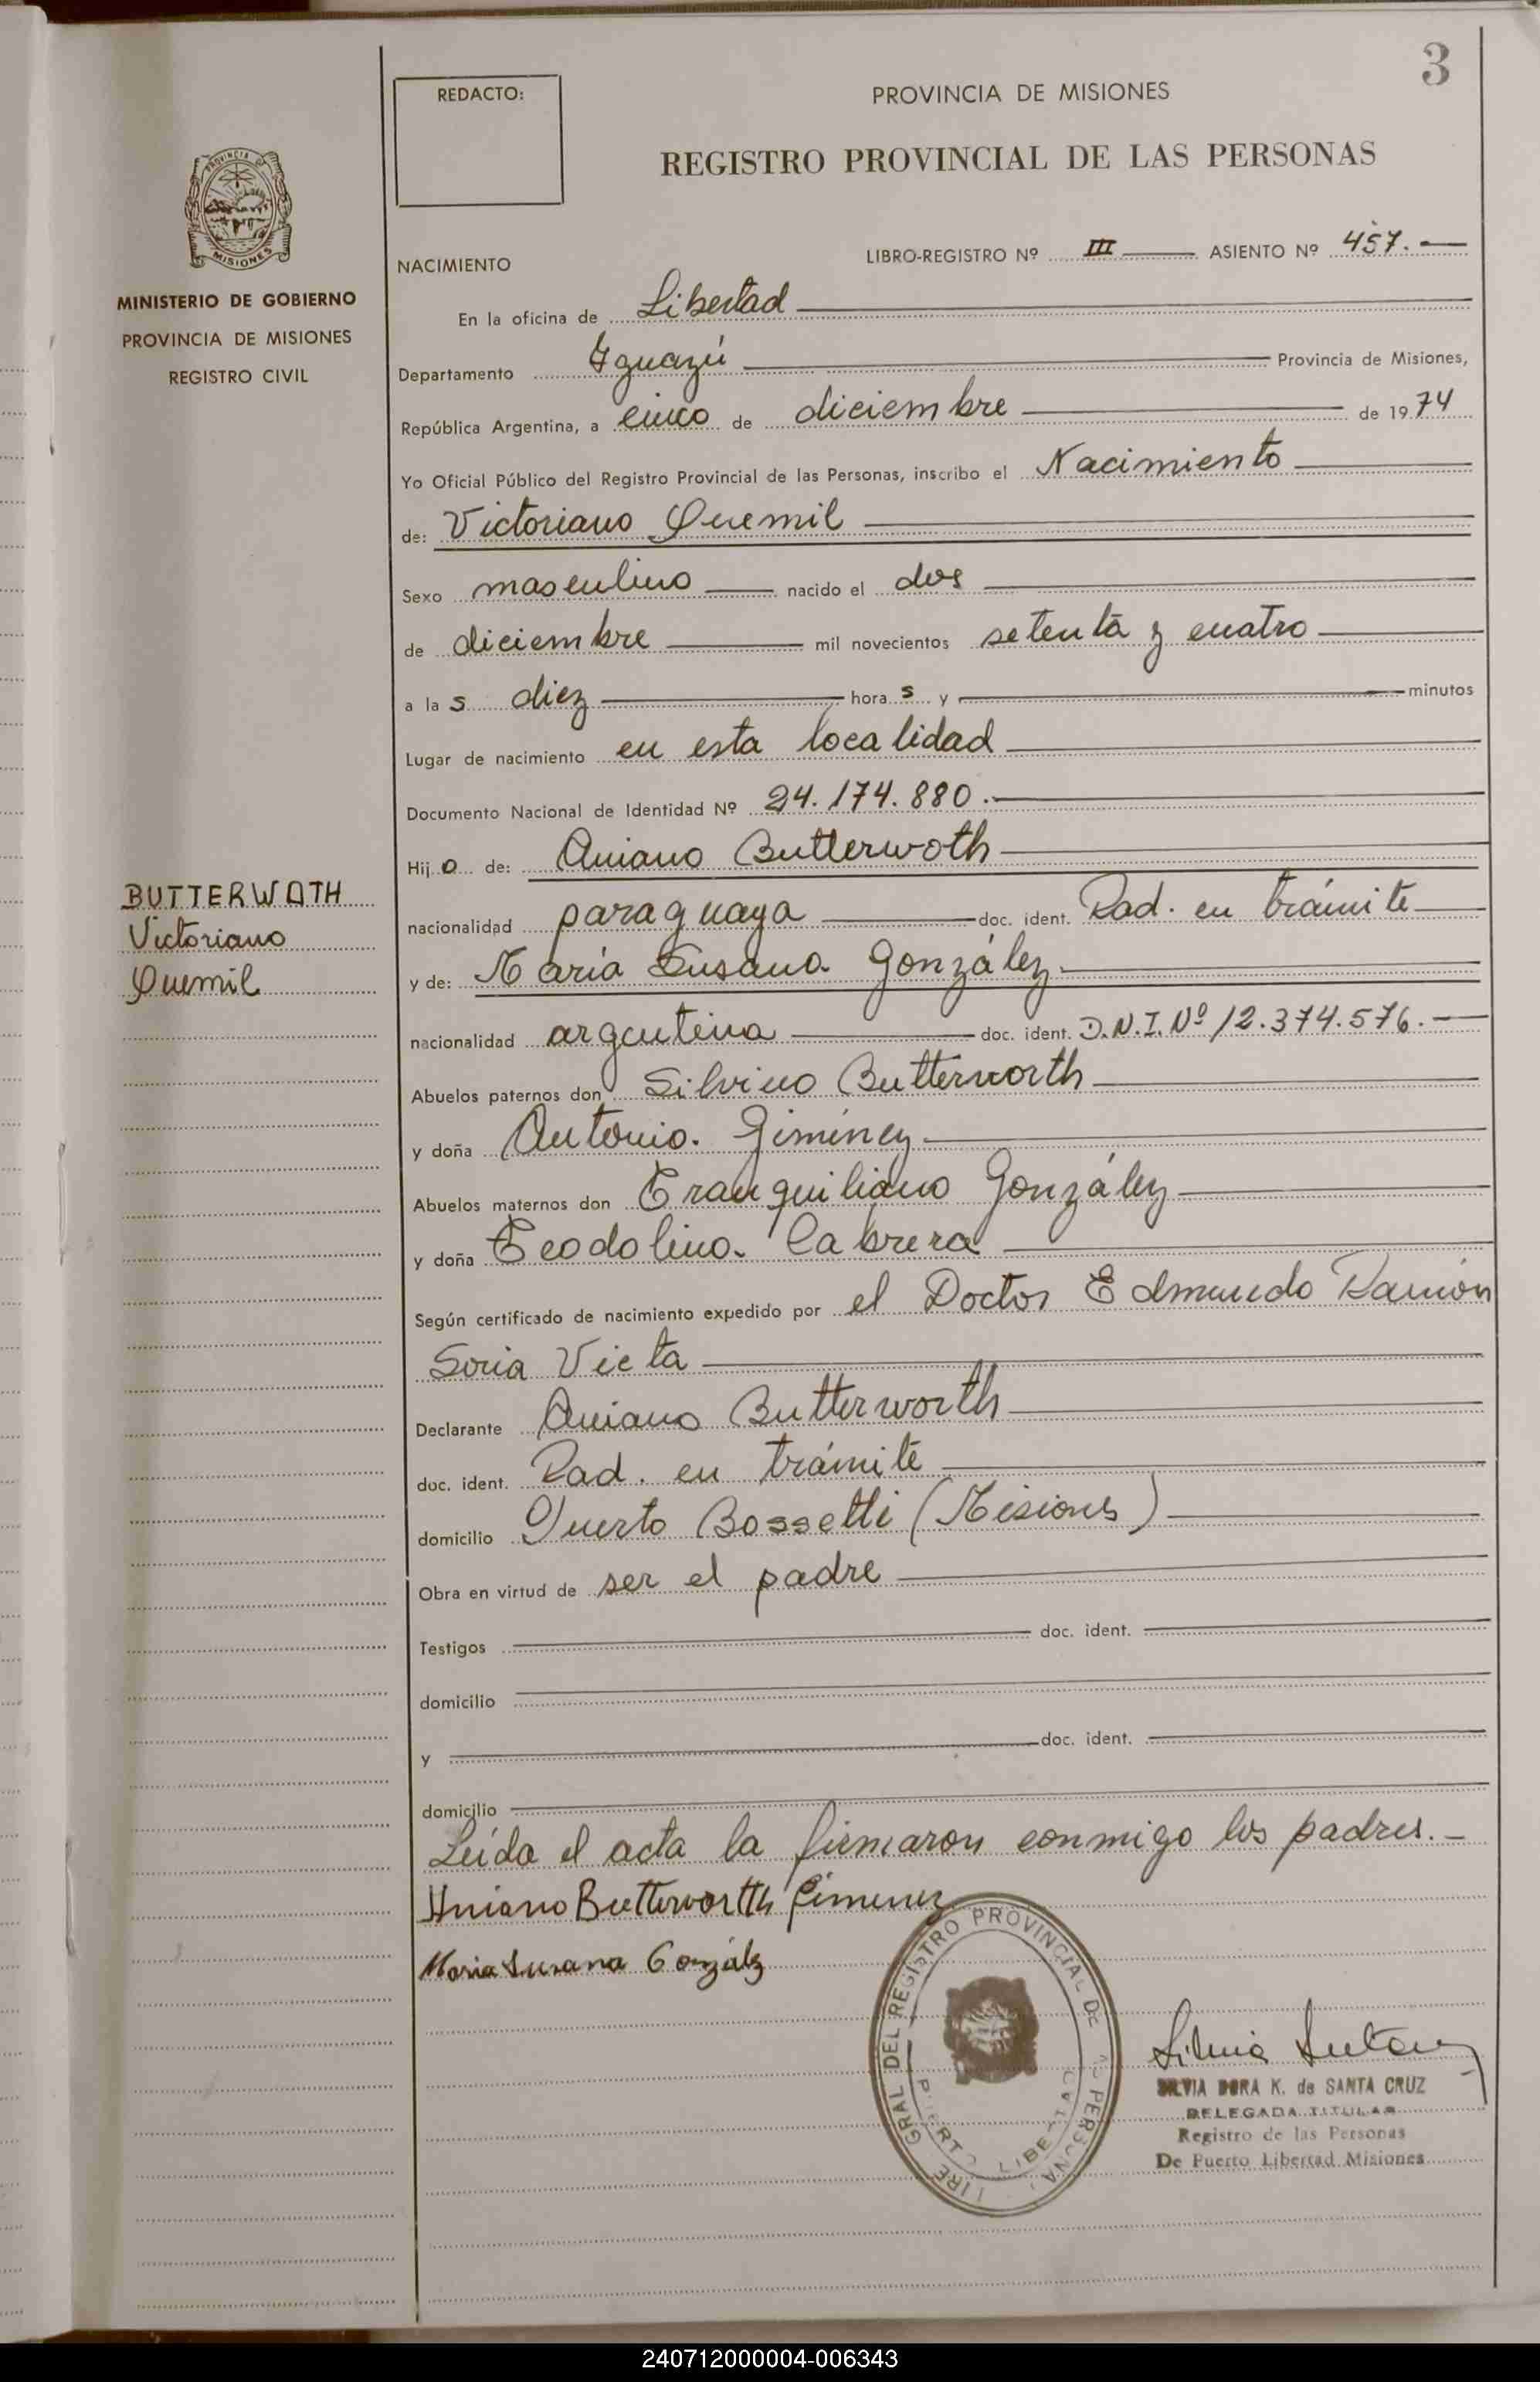 3
REDACTO:
PROVINCIA DE MISIONES
REGISTRO PROVINCIAL DE LAS PERSONAS
PROVINCIA D
MISIONES
MINISTERIO DE GOBIERNO
PROVINCIA DE MISIONES
REGISTRO CIVIL
NACIMIENTO
LIBRO-REGISTRO Nº III ASIENTO Nº 457.-
En la oficina de Libertad
Departamento Iguazú Provincia de Misiones,
República Argentina, a cinco de diciembre de 1974
Yo Oficial Público del Registro Provincial de las Personas, inscribo el Nacimiento
de: Victoriano Quemil
Sexo masculino nacido el dos
de diciembre mil novecientos setenta y cuatro
a las diez horas y minutos
Lugar de nacimiento en esta localidad
Documento Nacional de Identidad Nº 24.174.880.-
Hijo de: Aniano Butterwoth
BUTTERWOTH
Victoriano
Quemil
nacionalidad paraguaya doc. ident. Rad. en trámite
y de: María Susana González
nacionalidad argentina doc. ident. D.N.I. Nº 12.374.576.-
Abuelos paternos don Silvino Butterworth
y doña Antonia Giminez
Abuelos maternos don Tranquiliano González
y doña Teodolina Cabrera
Según certificado de nacimiento expedido por el Doctor Edmundo Ramón
Soria Vieta
Declarante Aniano Butterworth
doc. ident. Rad. en trámite
domicilio Puerto Bossetti (Misiones)
Obra en virtud de ser el padre
Testigos doc. ident.
domicilio
y doc. ident.
domicilio
Leída el acta la firmaron conmigo los padres.-
Aniano Butterworth Gimenez
Maria Susana Gonzalz
GRAL DEL REGISTRO PROVINCIAL DE
SILVIA DORA K. de SANTA CRUZ
DELEGADA TITULAR
Registro de las Personas
De Puerto Libertad Misiones
240712000004-006343